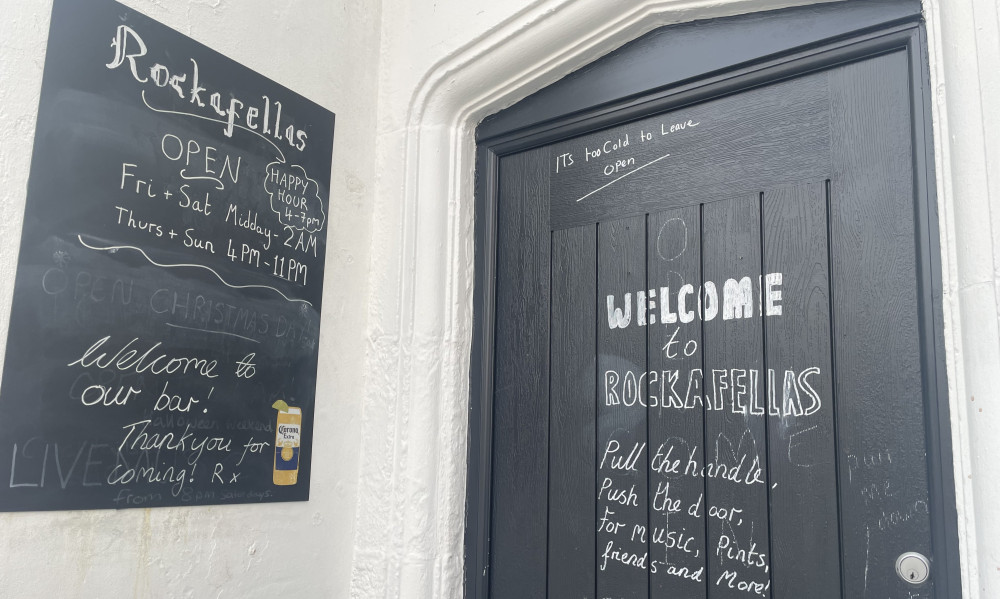 Rockafellas
OPEN
HAPPY
HOUR
4-7pm
Fri + Sat Midday - 2AM
Thurs + Sun 4PM - 11PM
OPEN CHRISTMAS DAY
Welcome to
our bar!
Thankyou for
coming! R x
LIVE
from 8pm saturdays.
Corona
Extra
ITS too Cold to Leave
open
WELCOME
to
ROCKAFELLAS
Pull the handle,
Push the door,
For music, Pints,
friends and More!